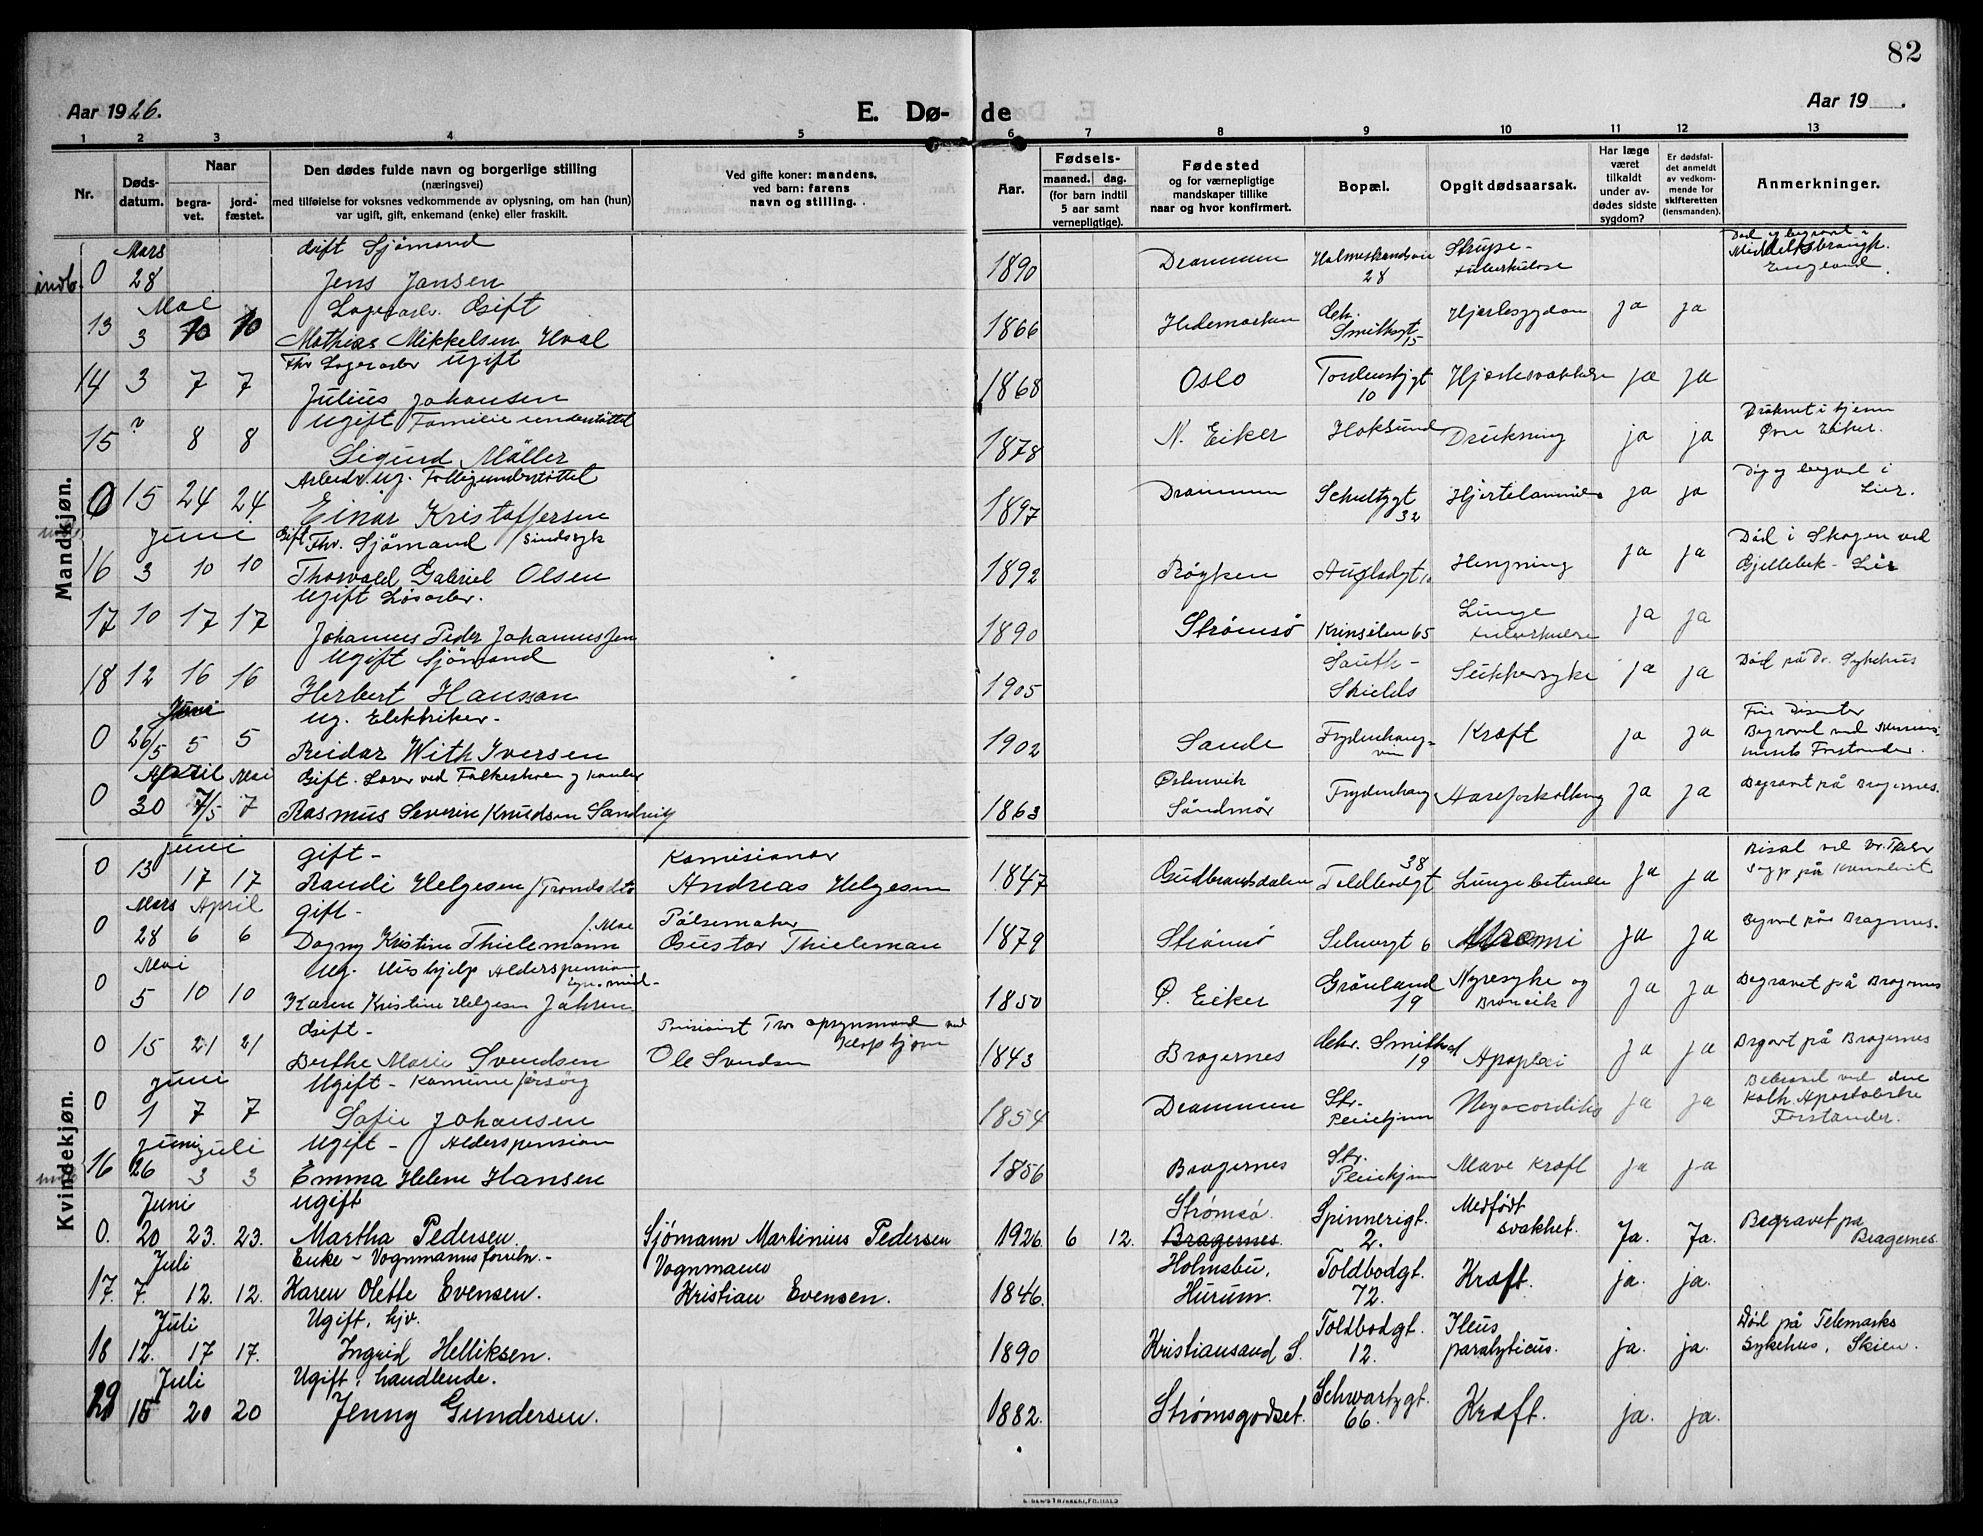 82
Aar 1926.
E. Dø- de
Aar 19 .
1 2 3 4 5 6 7 8 9 10 11 12 13
Nr.
Døds-
datum.
Naar
begra-
vet.
jord-
fæstet.
Den dødes fulde navn og borgerlige stilling
(næringsvei)
med tilføielse for voksnes vedkommende av oplysning, om han (hun)
var ugift, gift, enkemand (enke) eller fraskilt.
Ved gifte koner: mandens,
ved barn: farens
navn og stilling.
Aar.
Fødsels-
maaned. dag.
(for barn indtil
5 aar samt
vernepligtige).
Fødested
og for værnepligtige
mandskaper tillike
naar og hvor konfirmert.
Bopæl.
Opgit dødsaarsak.
Har læge
været
tilkaldt
under av-
dødes sidste
sygdom?
Er dødsfal-
det anmeldt
av vedkom-
mende for
skifteretten
(lensmanden).
Anmerkninger.
Mandkjøn.
indb.
Mars
Gift Sjømand
0 28 Jens Jansen 1890 Drammen 28
England.
Mai
Lagerarb. Gift
13 3 10 10 Mathias Mikkelsen Hval 1866 Hedemarken 15 Hjertesygdom ja ja
Fhv Lagerarb ugift
14 3 7 7 Julius Johansen 1868 Oslo Tordenskj.gt 10 ja ja
ugift Familieunderstøttet
15 ? 8 8 Sigurd Møller 1878 N. Eiker Hoksund Drukning ja ja
Øvre Eiker.
0 15 24 24 Einar Kristoffersen 1897 Drammen Schultzgt 32 ja ja
Lier.
Juni
Gift Fhv. Sjømand / Sindssyk
16 3 10 10 Thorvald Gabriel Olsen 1892 Røyken Hengning ja ja
Død i Skogen ved
Gjellebek - Lier
ugift Løsarb.
17 10 17 17 Johannes Peder Johannessen 1890 Strømsø 65 Lunge
tuberkulose ja ja
Ugift Sjømand
18 12 16 16 Herbert Hansson 1905 South-
Shields Sukkersyke ja ja Død på Dr. Sykehus
Juni
ug. Elektriker.
0 26/5 5 5 Reidar With Iversen 1902 Sande Kræft ja ja
Forstander.
April Mai
Gift. Lærer ved Folkeskolen
0 30 7/5 7 Rasmus Severin Knudsen Sandvig 1863 Søndmør Frydenhaug Aareforkalkning ja ja Begravet på Bragernes.
Kvindekjøn.
Juni
gift - Komisionær
0 13 17 17 Randi Helgesen / Trondsdtr Andreas Helgesen 1847 Gudbrandsdalen 38 Toldbodgt Lungebetendelse ja ja
Mars April
gift - Pølsemaker
0 28 6 6 Dagny Kristine Thielemann Gustav Thieleman 1879 Strømsø 6 ja ja Begravet på Bragernes.
Mai
Ug. Hushjelp Alderspension
0 5 10 10 Karen Kristine Helgesen 1850 Ø. Eiker Grønland
19 Nyresyke og
Bronkit ja ja Begravet på Bragernes
Gift -
0 15 21 21 Berthe Marie Svendsen Ole Svendsen 1843 Bragernes 19 Apoplexi ja ja Begravet på Bragernes
Juni
Ugift - Komuneforsørg
0 1 7 7 Sofie Johansen 1854 Drammen Str.
Pleiehjem ja ja
Kath. Apostoliske
Forstander.
Juni Juli
Ugift - Alderspension
16 26 3 3 Emma Helene Hansen 1856 Bragernes Str.
Pleiehjem Mave kræft ja ja
Juni
ugift
0. 20 23. 23. Martha Pedersen. Sjømann Martinius Pedersen 1926 6 12. Strømsø.
Bragernes. Spinnerigt.
2. Medfødt
svakhet. Ja. Ja. Begravet på
Bragernes.
Juli
Enke - Vognmannsforretn.- Vognmann
17. 7. 12. 12. Karen Olette Evensen. Kristian Evensen. 1846. Holmsbu,
Hurum. Toldbodgt.
72. Kræft. ja. ja.
Juli
Ugift, hjv.
18 12. 17 17. Ingrid Helliksen. 1890 Kristiansand S. Toldbodgt.
12. Ileus
paralyticus. ja. ja. Død på Telemarks
Sykehus, Skien.
Juli
Ugift, handlende.
15 20 20 Jenny Gundersen. 1882. Strømsgodset. Schwartzgt.
66. Kræft. ja. ja.